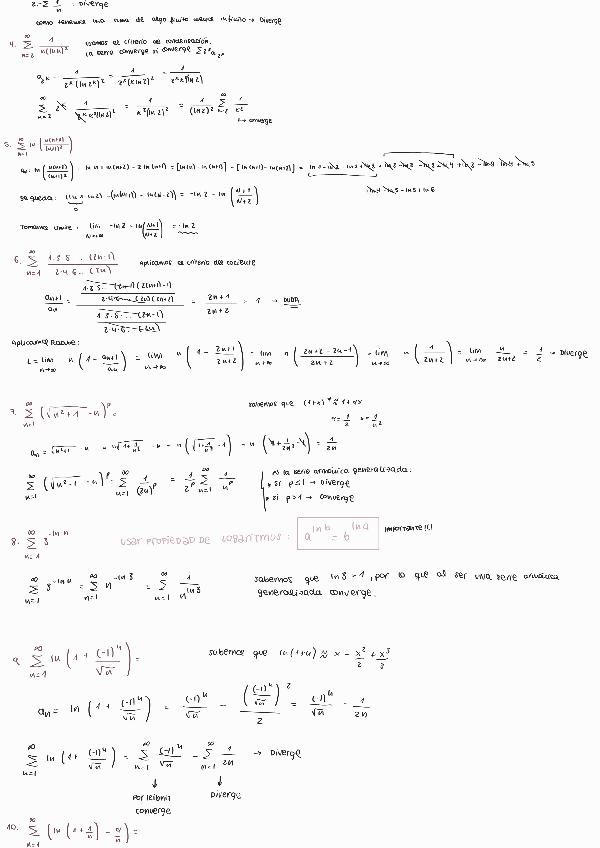 2.- Σ 1/n : Diverge
como tenemos una suma de algo finito menos infinito → Diverge
4. ∞ Σ n=2 1/(n(ln n)²) usamos el criterio de condensación.
la serie converge si converge Σ 2^k a_2^k
a_2^k = 1/(2^k (ln 2^k)²) = 1/(2^k (k ln 2)²) = 1/(2^k k² (ln 2)²)
∞ Σ k=2 2^k 1/(2^k k² (ln 2)²) = 1/(k² (ln 2)²) = 1/(ln 2)² ∞ Σ k=2 1/k²
↳ converge
5. ∞ Σ n=1 ln (n(n+2)/(n+1)²)
Tomamos límite: lim N→∞ -ln 2 - ln (N+1/N+2) = -ln 2
6. ∞ Σ n=1 1·3·5 ... (2n-1) / 2·4·6 ... (2n) aplicamos el criterio del cociente
a_n+1/a_n = (1·3·5 ... (2n-1)(2(n+1)-1) / 2·4·6 ... (2n)(2n+2)) / (1·3·5 ... (2n-1) / 2·4·6 ... (2n)) = 2n+1/2n+2 = 1 → DUDA
Aplicamos Raabe:
L = lim n→∞ n (1 - a_n+1/a_n) = lim n→∞ n (1 - 2n+1/2n+2) = lim n→∞ n (2n+2-2n-1/2n+2) = lim n→∞ n (1/2n+2) = lim n→∞ n/2n+2 = 1/2 → Diverge
7. ∞ Σ n=1 (√n²+1 - n)^p = sabemos que (1+x)^α ≈ 1+αx
α = 1/2 x = 1/n²
a_n = √n²+1 - n = n√1+1/n² - n = n (√1+1/n² - 1) = n (1 + 1/2n² - 1) = 1/2n
∞ Σ n=1 (√n²+1 - n)^p = ∞ Σ n=1 1/(2n)^p = 1/2^p ∞ Σ n=1 1/n^p
es la serie armónica generalizada:
• si p ≤ 1 → Diverge
• si p > 1 → converge
8. ∞ Σ n=1 3^-ln n USAR PROPIEDAD DE LOGARITMOS: a^ln b = b^ln a IMPORTANTE!!!
∞ Σ n=1 3^-ln n = ∞ Σ n=1 n^-ln 3 = ∞ Σ n=1 1/n^ln 3
sabemos que ln 3 > 1, por lo que al ser una serie armónica
generalizada converge.
9. ∞ Σ n=1 ln (1 + (-1)^n/√n) = sabemos que ln(1+x) ≈ x - x²/2 + x³/3
a_n = ln (1 + (-1)^n/√n) = (-1)^n/√n - ((-1)^n/√n)²/2 = (-1)^n/√n - 1/2n
∞ Σ n=1 ln (1 + (-1)^n/√n) = ∞ Σ n=1 (-1)^n/√n - ∞ Σ n=1 1/2n → Diverge
↓ ↓
Por Leibniz Diverge
converge